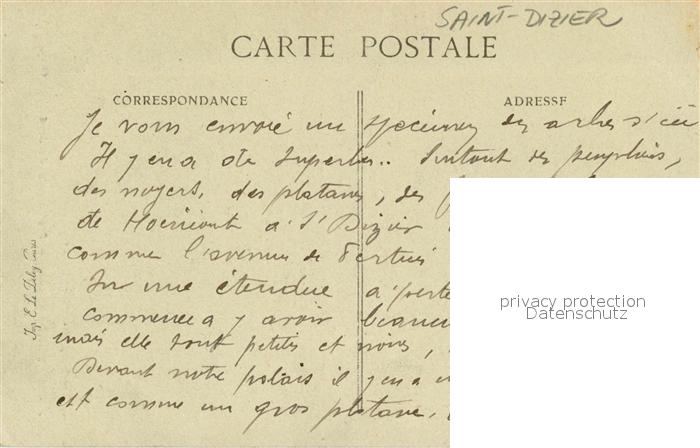 SAINT-DIZIER
CARTE POSTALE
CORRESPONDANCE
ADRESSE
Je vous envoie un spécimen des arbres d'ici
Il y en a de superbes.. surtout des peupliers,
des noyers, des platanes, des
de Hoericourt à St Dizier
comme l'avenue de
Sur une étendue à perte
commence à y avoir beauc
mais elle sont petites et noires,
Devant notre palais il y en a
est comme un gros platane,
Imp. E. Le Deley, Paris
privacy protection
Datenschutz